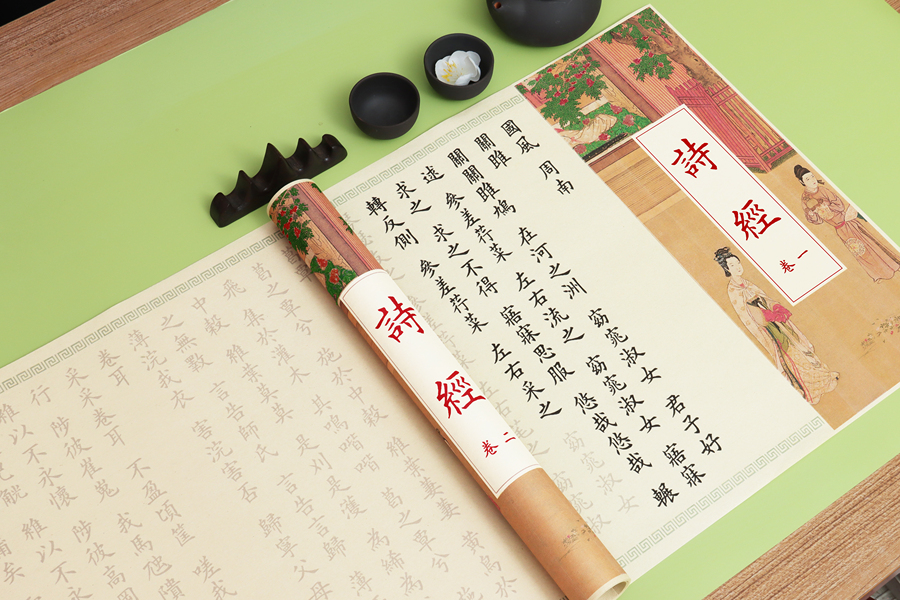 詩經
卷一
國風 周南
關雎
關關雎鳩 在河之洲 窈窕淑女 君子好
逑 參差荇菜 左右流之 窈窕淑女 寤寐
求之 求之不得 寤寐思服 悠哉悠哉 輾
轉反側 參差荇菜 左右采之
窈窕淑女
詩經
卷二
覃兮 施於中穀 維葉萋萋 黃鳥於
飛 集於灌木 其鳴喈喈 葛之覃兮
中穀 維葉莫莫 是刈是濩 為絺
之無斁 言告師氏 言告言歸 薄
薄浣我衣 害浣害否 歸寧父母
卷耳
采采卷耳 不盈頃筐 嗟我
行 陟彼崔嵬 我馬虺隤
維以不永懷 陟彼高岡
維以不